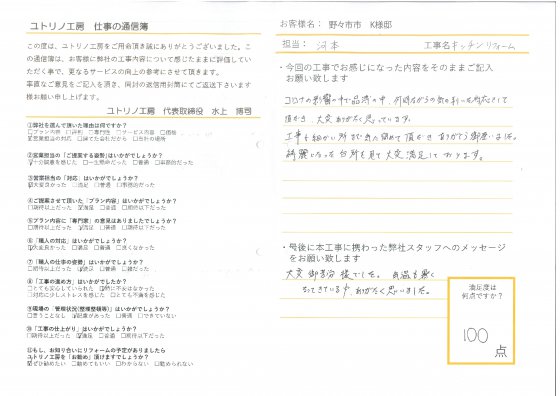 ユトリノ工房　仕事の通信簿
この度は、ユトリノ工房をご用命頂き誠にありがとうございました。こ
の通信簿は、お客様に弊社の工事内容について感じたままに評価してい
ただく事で、更なるサービスの向上の参考にさせて頂きます。
率直なご意見をご記入を頂き、同封の返信用封筒にてご返送下さいます
様お願い申し上げます。
ユトリノ工房　代表取締役　水上　博司
①弊社を選んで頂いた理由は何ですか？
□プラン内容 □評判 □専門性 □サービス内容 □価格
☑営業担当の対応 □建てた会社だから □会社の場所
②営業担当の「ご提案する姿勢」はいかがでしょうか？
☑十分誠意を感じた □一生懸命だった □普通 □事務的だった
③営業担当の「対応」はいかがでしょうか？
☑大変良かった □満足 □普通 □事務的だった
④ご提案させて頂いた「プラン内容」はいかがでしょうか？
□期待以上だった ☑満足 □普通 □期待以下だった
⑤プラン内容に「専門家」の意見はありましたでしょうか？
□期待以上だった ☑満足 □普通 □期待以下だった
⑥「職人の対応」はいかがでしょうか？
☑大変良かった □満足 □普通 □良くなかった
⑦「職人の仕事の姿勢」はいかがでしょうか？
□期待以上だった ☑満足 □普通 □雑だった
⑧「工事の進め方」はいかがでしたか？
□とても安心していられた ☑特に不安はなかった
□対応に少しストレスを感じた □とても不満を感じた
⑨現場の「管理状況(整理整頓等)」はいかがでしょうか？
□言うことなし ☑配慮があった □普通 □できていない
⑩「工事の仕上がり」はいかがでしょうか？
□期待以上だった ☑満足 □普通 □期待以下だった
⑪もし、お知り合いにリフォームの予定がありましたら
ユトリノ工房を「お勧め」頂けますでしょうか？
☑ぜひ勧めたい □勧めてもいい □わからない □勧められない
お客様名：　野々市市　K様邸
担当：　河本　　工事名 キッチンリフォーム
・今回の工事でお感じになった内容をそのままご記入
お願い致します
コロナの影響の中で品薄の中、
頂かき、大変 ありがたく思っています。
工事も細かい所まで
綺麗になった台所を見て大変満足して おります。
・最後に本工事に携わった弊社スタッフへのメッセージ
をお願い致します
大変 御苦労 様でした。
思いました。
満足度は
何点ですか？
100
点